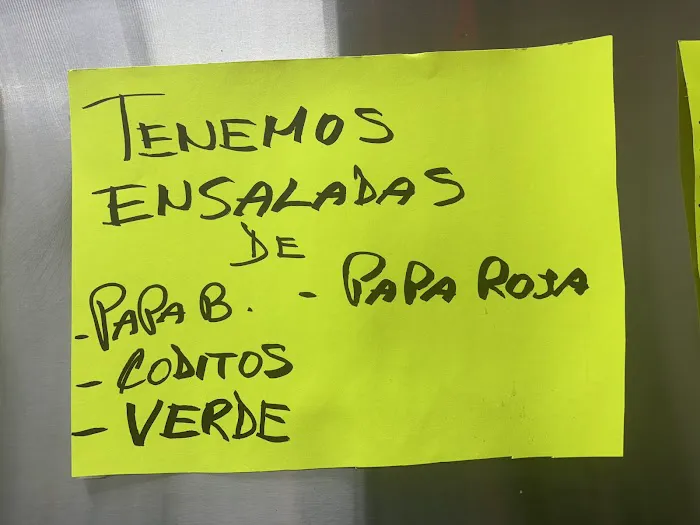 TENEMOS
ENSALADAS
DE
- PAPA B. - PAPA ROJA
- CODITOS
- VERDE